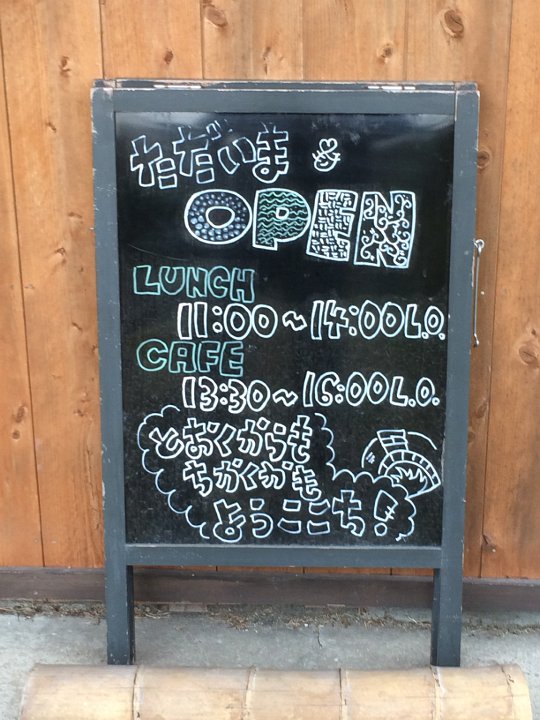 ただいま
OPEN
LUNCH
11:00～14:00L.O.
CAFE
13:30～16:00L.O.
とおくからも
ちかくがも
ようここち!